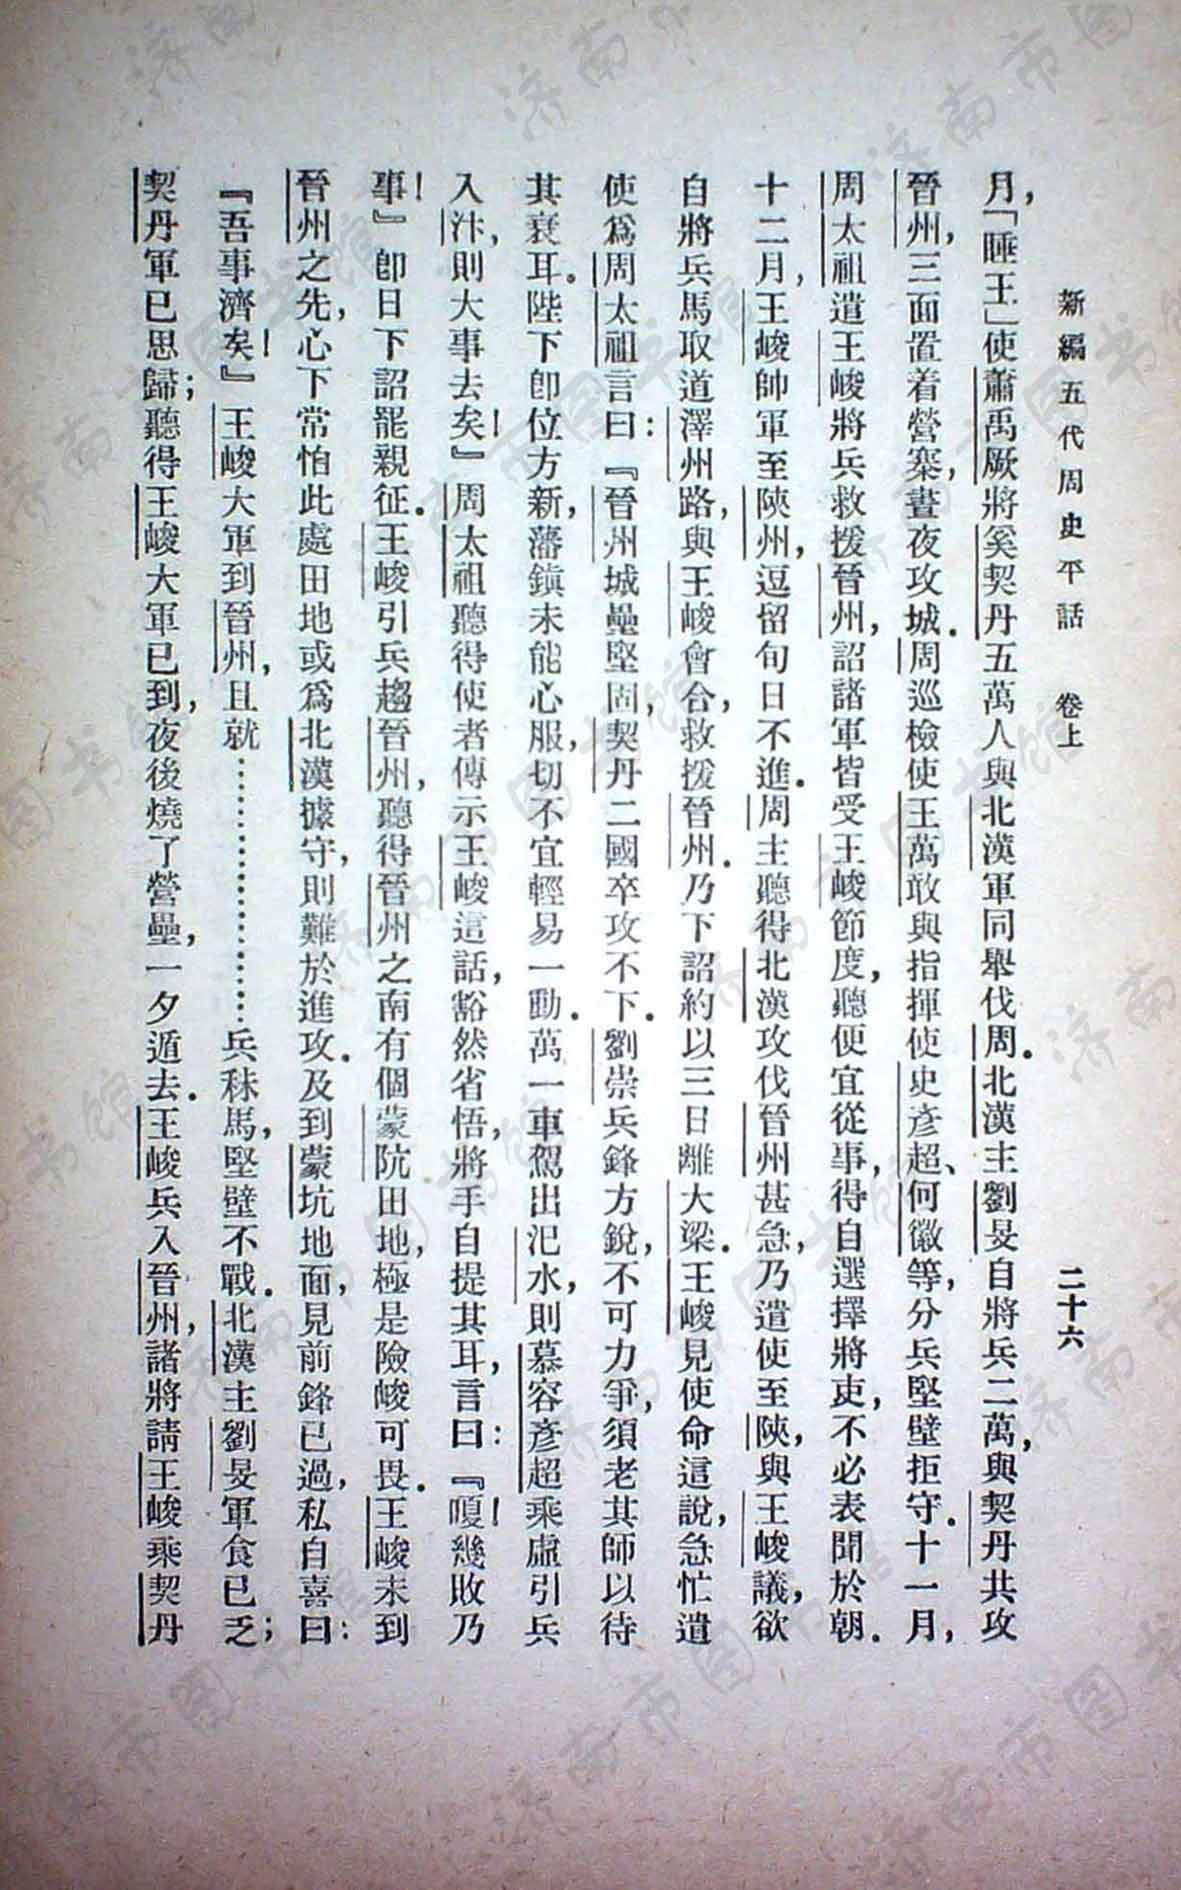 新編五代周史平話　卷上　二十六
月，「睡王」使蕭禹厥將奚契丹五萬人與北漢軍同舉伐周。北漢主劉旻自將兵二萬，與契丹共攻
晉州，三面置着營寨，晝夜攻城。周巡檢使王萬敢與指揮使史彥超、何徽等，分兵堅壁拒守。十一月，
周太祖遣王峻將兵救援晉州，詔諸軍皆受王峻節度，聽便宜從事，得自選擇將吏，不必表聞於朝。
十二月，王峻帥軍至陝州，逗留旬日不進。周主聽得北漢攻伐晉州甚急，乃遣使至陝，與王峻議，欲
自將兵馬取道澤州路，與王峻會合，救援晉州。乃下詔約以三日離大梁。王峻見使命這說，急忙遣
使爲周太祖言曰：『晉州城壘堅固，契丹二國卒攻不下。劉崇兵鋒方銳，不可力爭，須老其師以待
其衰耳。陛下卽位方新，藩鎮未能心服，切不宜輕易一動。萬一車駕出汜水，則慕容彥超乘虛引兵
入汴，則大事去矣！』周太祖聽得使者傳示王峻這話，豁然省悟，將手自提其耳，言曰：『嗄！幾敗乃
事！』卽日下詔罷親征。王峻引兵趨晉州，聽得晉州之南有個蒙阬田地，極是險峻可畏。王峻未到
晉州之先，心下常怕此處田地或爲北漢據守，則難於進攻。及到蒙坑地面，見前鋒已過，私自喜曰：
『吾事濟矣！』王峻大軍到晉州，且就…………………兵秣馬，堅壁不戰。北漢主劉旻軍食已乏；
契丹軍已思歸；聽得王峻大軍已到，夜後燒了營壘，一夕遁去。王峻兵入晉州，諸將請王峻乘契丹